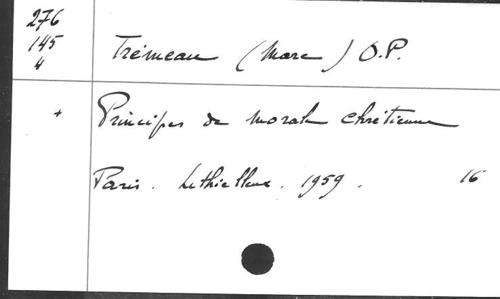 276
145
4
Trémeau (Marc) O.P.
+ Principes de morale chrétienne
Paris. Lethielleux. 1959. 16